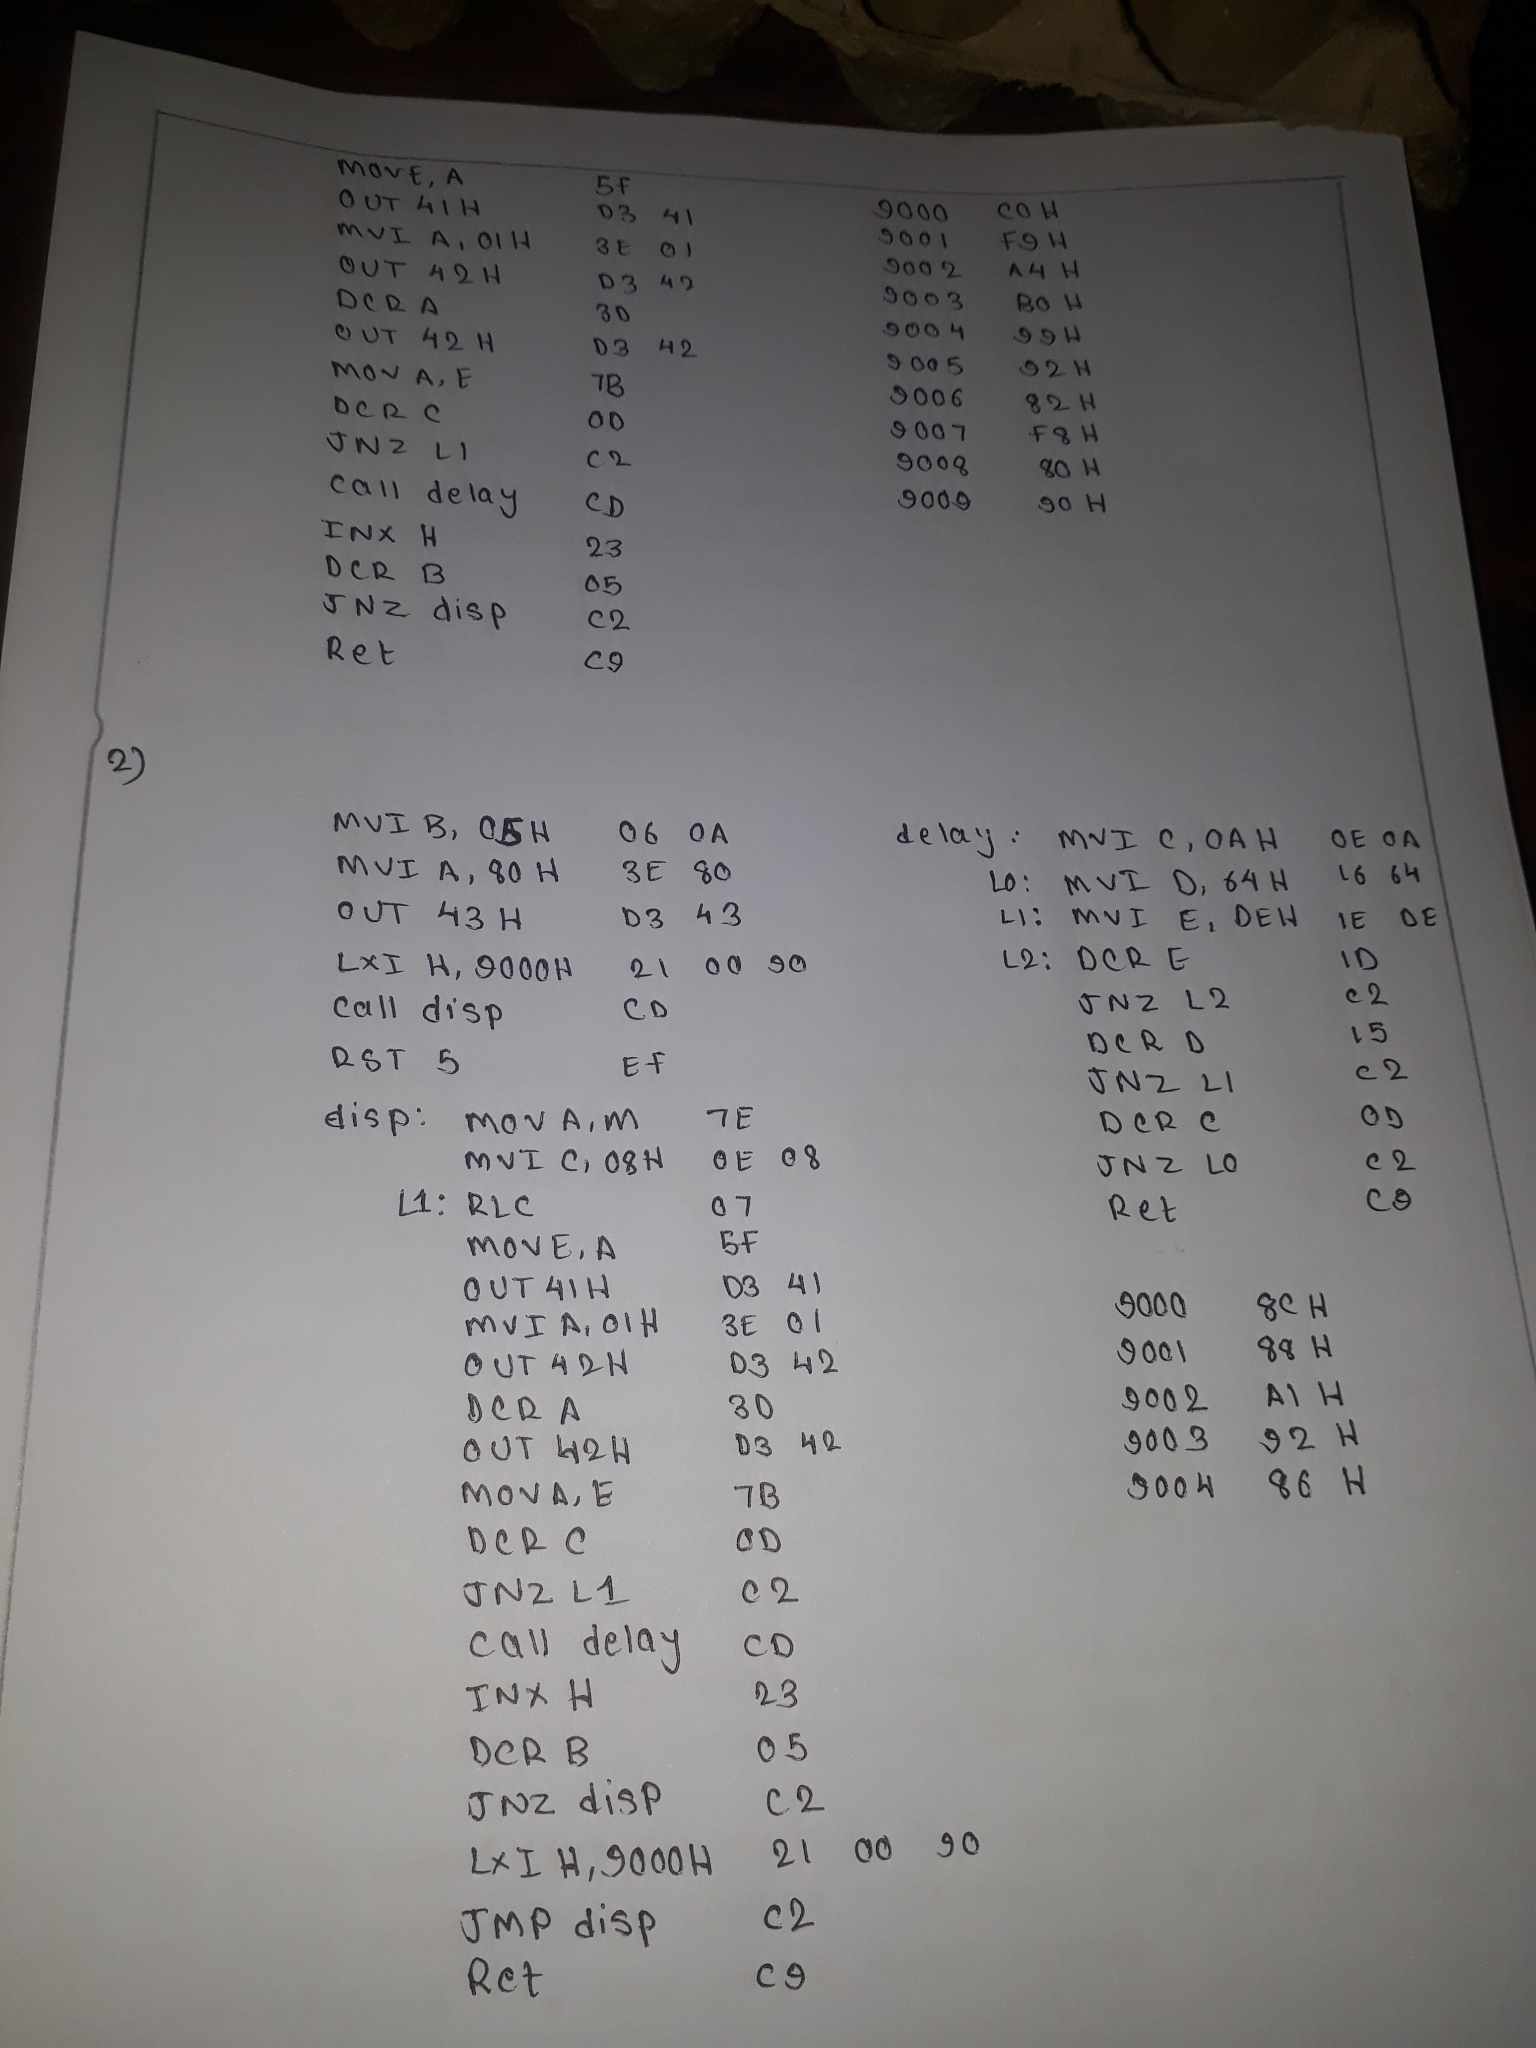 MOVE, A 5F
OUT 41H D3 41
MVI A, 01H 3E 01
OUT 42H D3 42
DCR A 3D
OUT 42H D3 42
MOV A, E 7B
DCR C 0D
JNZ L1 C2
Call delay CD
INX H 23
DCR B 05
JNZ disp C2
Ret C9
9000 C0H
9001 F9H
9002 A4H
9003 B0H
9004 99H
9005 92H
9006 82H
9007 F8H
9008 80H
9009 90H
2)
MVI B, 05H 06 0A
MVI A, 80H 3E 80
OUT 43H D3 43
LXI H, 9000H 21 00 90
Call disp CD
RST 5 EF
disp: MOV A, M 7E
MVI C, 08H 0E 08
L1: RLC 07
MOVE, A 5F
OUT 41H D3 41
MVI A, 01H 3E 01
OUT 42H D3 42
DCR A 3D
OUT 42H D3 42
MOVA, E 7B
DCR C 0D
JNZ L1 C2
Call delay CD
INX H 23
DCR B 05
JNZ disp C2
LXI H, 9000H 21 00 90
JMP disp C2
Ret C9
delay: MVI C, 0AH 0E 0A
L0: MVI D, 64H 16 64
L1: MVI E, DEH 1E DE
L2: DCR E 1D
JNZ L2 C2
DCR D 15
JNZ L1 C2
DCR C 0D
JNZ L0 C2
Ret C9
9000 8CH
9001 88H
9002 A1H
9003 92H
9004 86H